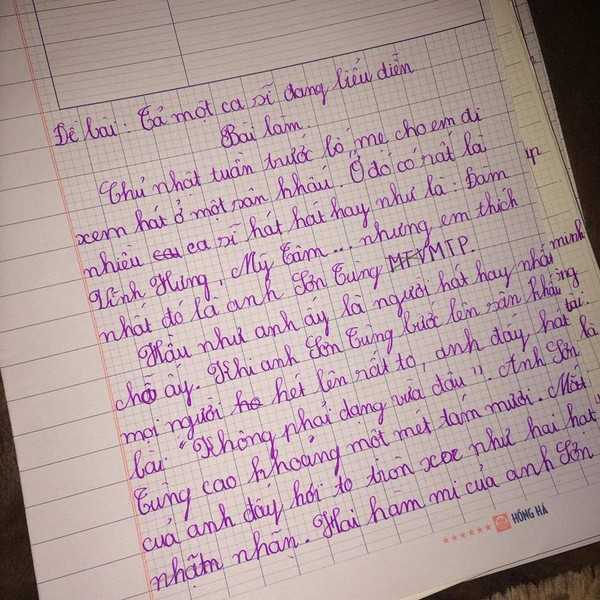 Đề bài: Tả một ca sĩ đang biểu diễn
Bài làm.
Chủ nhật tuần trước bố mẹ cho em đi
xem hát ở một sân khấu. Ở đó có rất là
nhiều ca sĩ hát hát hay như là: Đàm
Vĩnh Hưng, Mỹ Tâm... nhưng em thích
nhất đó là anh Sơn Tùng MTP.
Hầu như anh ấy là người hát hay nhất mình
chỗ ấy. Khi anh Sơn Tùng bước lên sân khấu
mọi người hét lên rất to, anh đấy hát
bài: "Không phải dạng vừa đâu". Anh Sơn
Tùng cao khoảng một mét tám mươi. Mắt
của anh đấy hơi to tròn xoe như hai hạt
nhãn. Hai hàm mi của anh Sơn
HỒNG HÀ